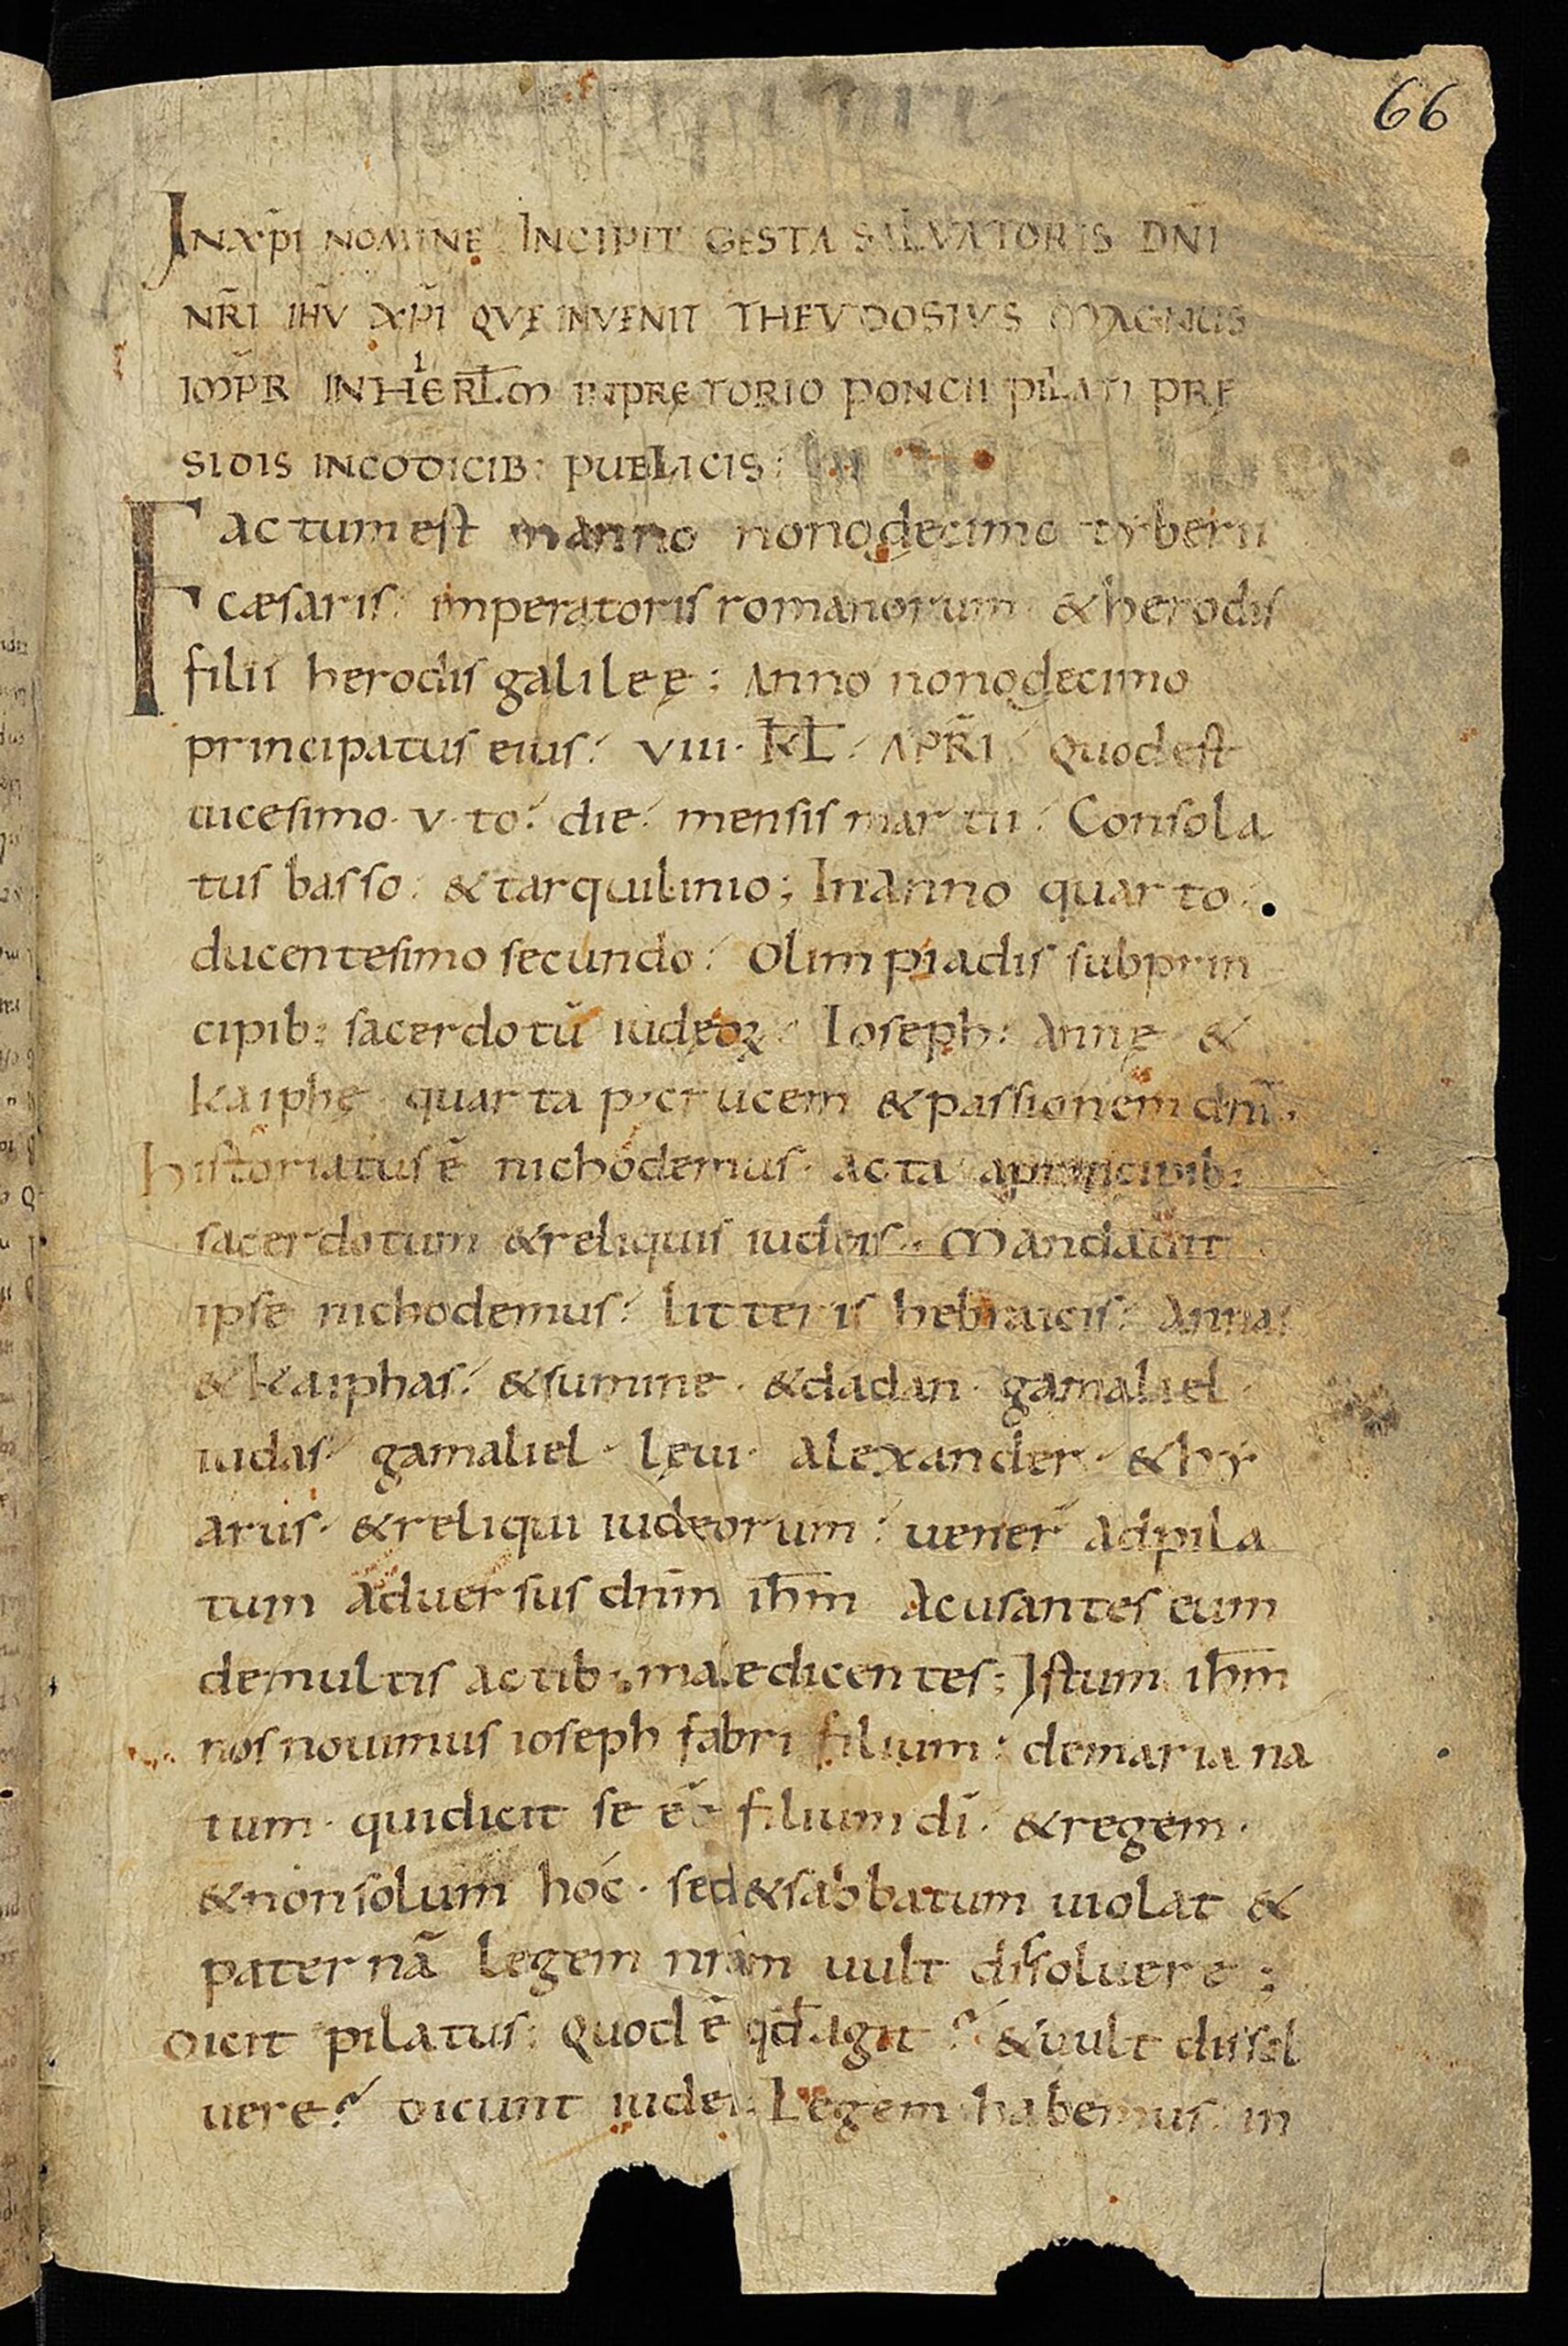 66
INXP̄I NOMINE INCIPIT GESTA SALVATORIS DN̄I
NR̄I IHV̄ XP̄I QVĘ INVENIT THEVDOSIVS MAGNUS
IMP̄R INHIERL̄M INPRĘTORIO PONCII PILATI PRĘ
SIDIS INCODICIB: PUBLICIS:
Factumest inanno nonodecimo tyberii
cæsaris: imperatoris romanorum &herodis
filii herodis galileę; Anno nonodecimo
principatus eius: VIII· KL̄: APR̄I: Quodest
uicesimo· v·to: die: mensis martii: Consola
tus basso: &tarquilinio; Inanno quarto:
ducentesimo secundo: Olimpiadis subprin
cipib: sacerdotū iudęoꝝ: Ioseph: Annę &
Kaiphę quarta p'crucem &passionem dn̄i·
historiatusē nichodemus· acta aprincipib:
sacerdotum &reliquis iudeis· Mandauit
ipse nichodemus: litteris hebraicis: Annas
&Kaiphas: &summe· &dadan· gamaliel·
iudas· gamaliel· lęui· Alexander· &hy
arus· &reliqui iudeorum: uener̄ Adpila
tum Aduersus dn̄m ihm̄ Acusantes eum
demultis actib: maledicentes; Istum ihm̄
nos nouimus ioseph fabri filium: demaria na
tum· quidicit se eē filium dī· &regem·
&nonsolum hóc· sed&sabbatum uiolat &
paternā legem nr̄am uult dissoluere;
Dicit pilatus: Quod ē qđ agit? &uult dissol
uere? Dicunt iudei: Legem habemus in